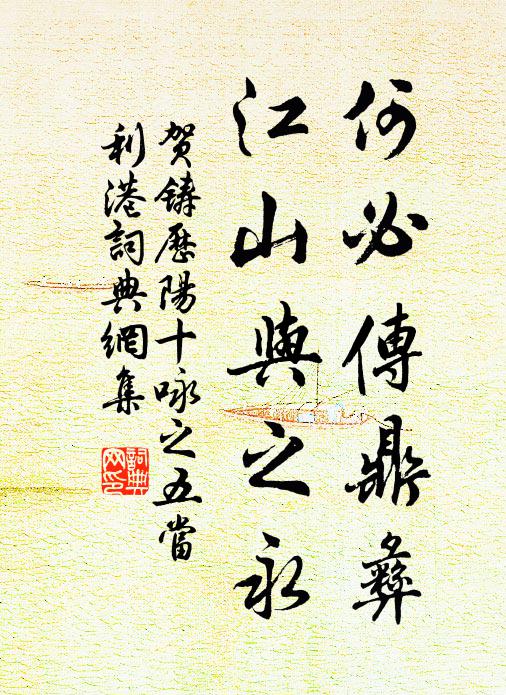 何必傳鼎彝
江山與之永
賀鑄歷陽十咏之五當
利港詞典網集
詞典网印